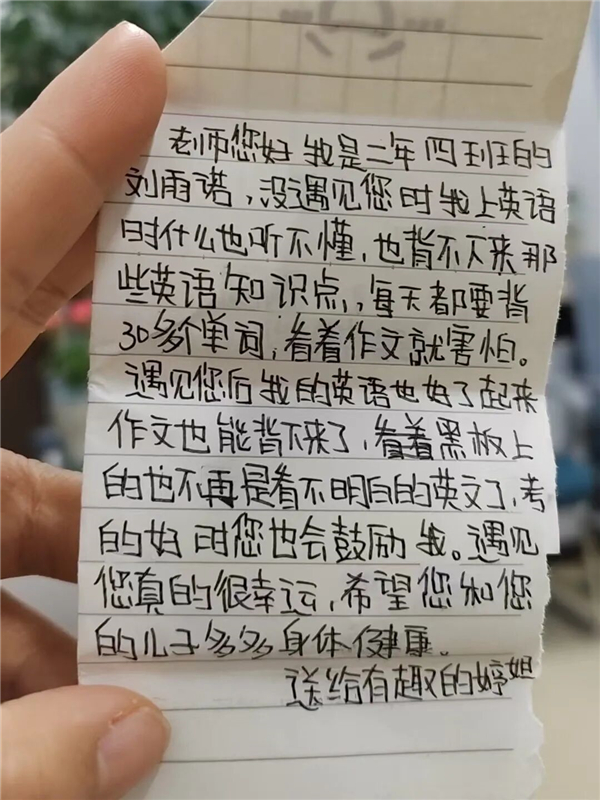 老师您好 我是二年四班的
刘雨诺，没遇见您时我上英语
时什么也听不懂，也背不下来那
些英语知识点，每天都要背
30多个单词，看着作文就害怕。
遇见您后我的英语也好了起来
作文也能背下来了，看着黑板上
的也不再是看不明白的英文了，考
的好时您也会鼓励我。遇见
您真的很幸运，希望您和您
的儿子多多身体健康。
送给有趣的婷姐